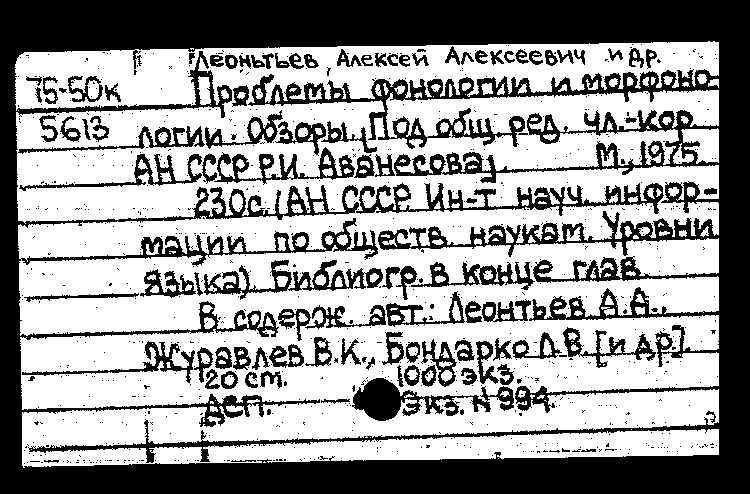 Леонтьев, Алексей Алексеевич и др.
75-50к Проблемы фонологии и морфоно-
5613 логии. Обзоры. [Под общ. ред. чл.-кор.
АН СССР Р.И. Аванесова]. М., 1975.
230с. (АН СССР. Ин-т науч. инфор-
мации по обществ. наукам. Уровни
языка). Библиогр. в конце глав.
В содерж. авт.: Леонтьев А.А.,
Журавлев В.К., Бондарко Л.В. [и др.].
20 ст. 1000 экз.
ДСП. Экз. N 994.